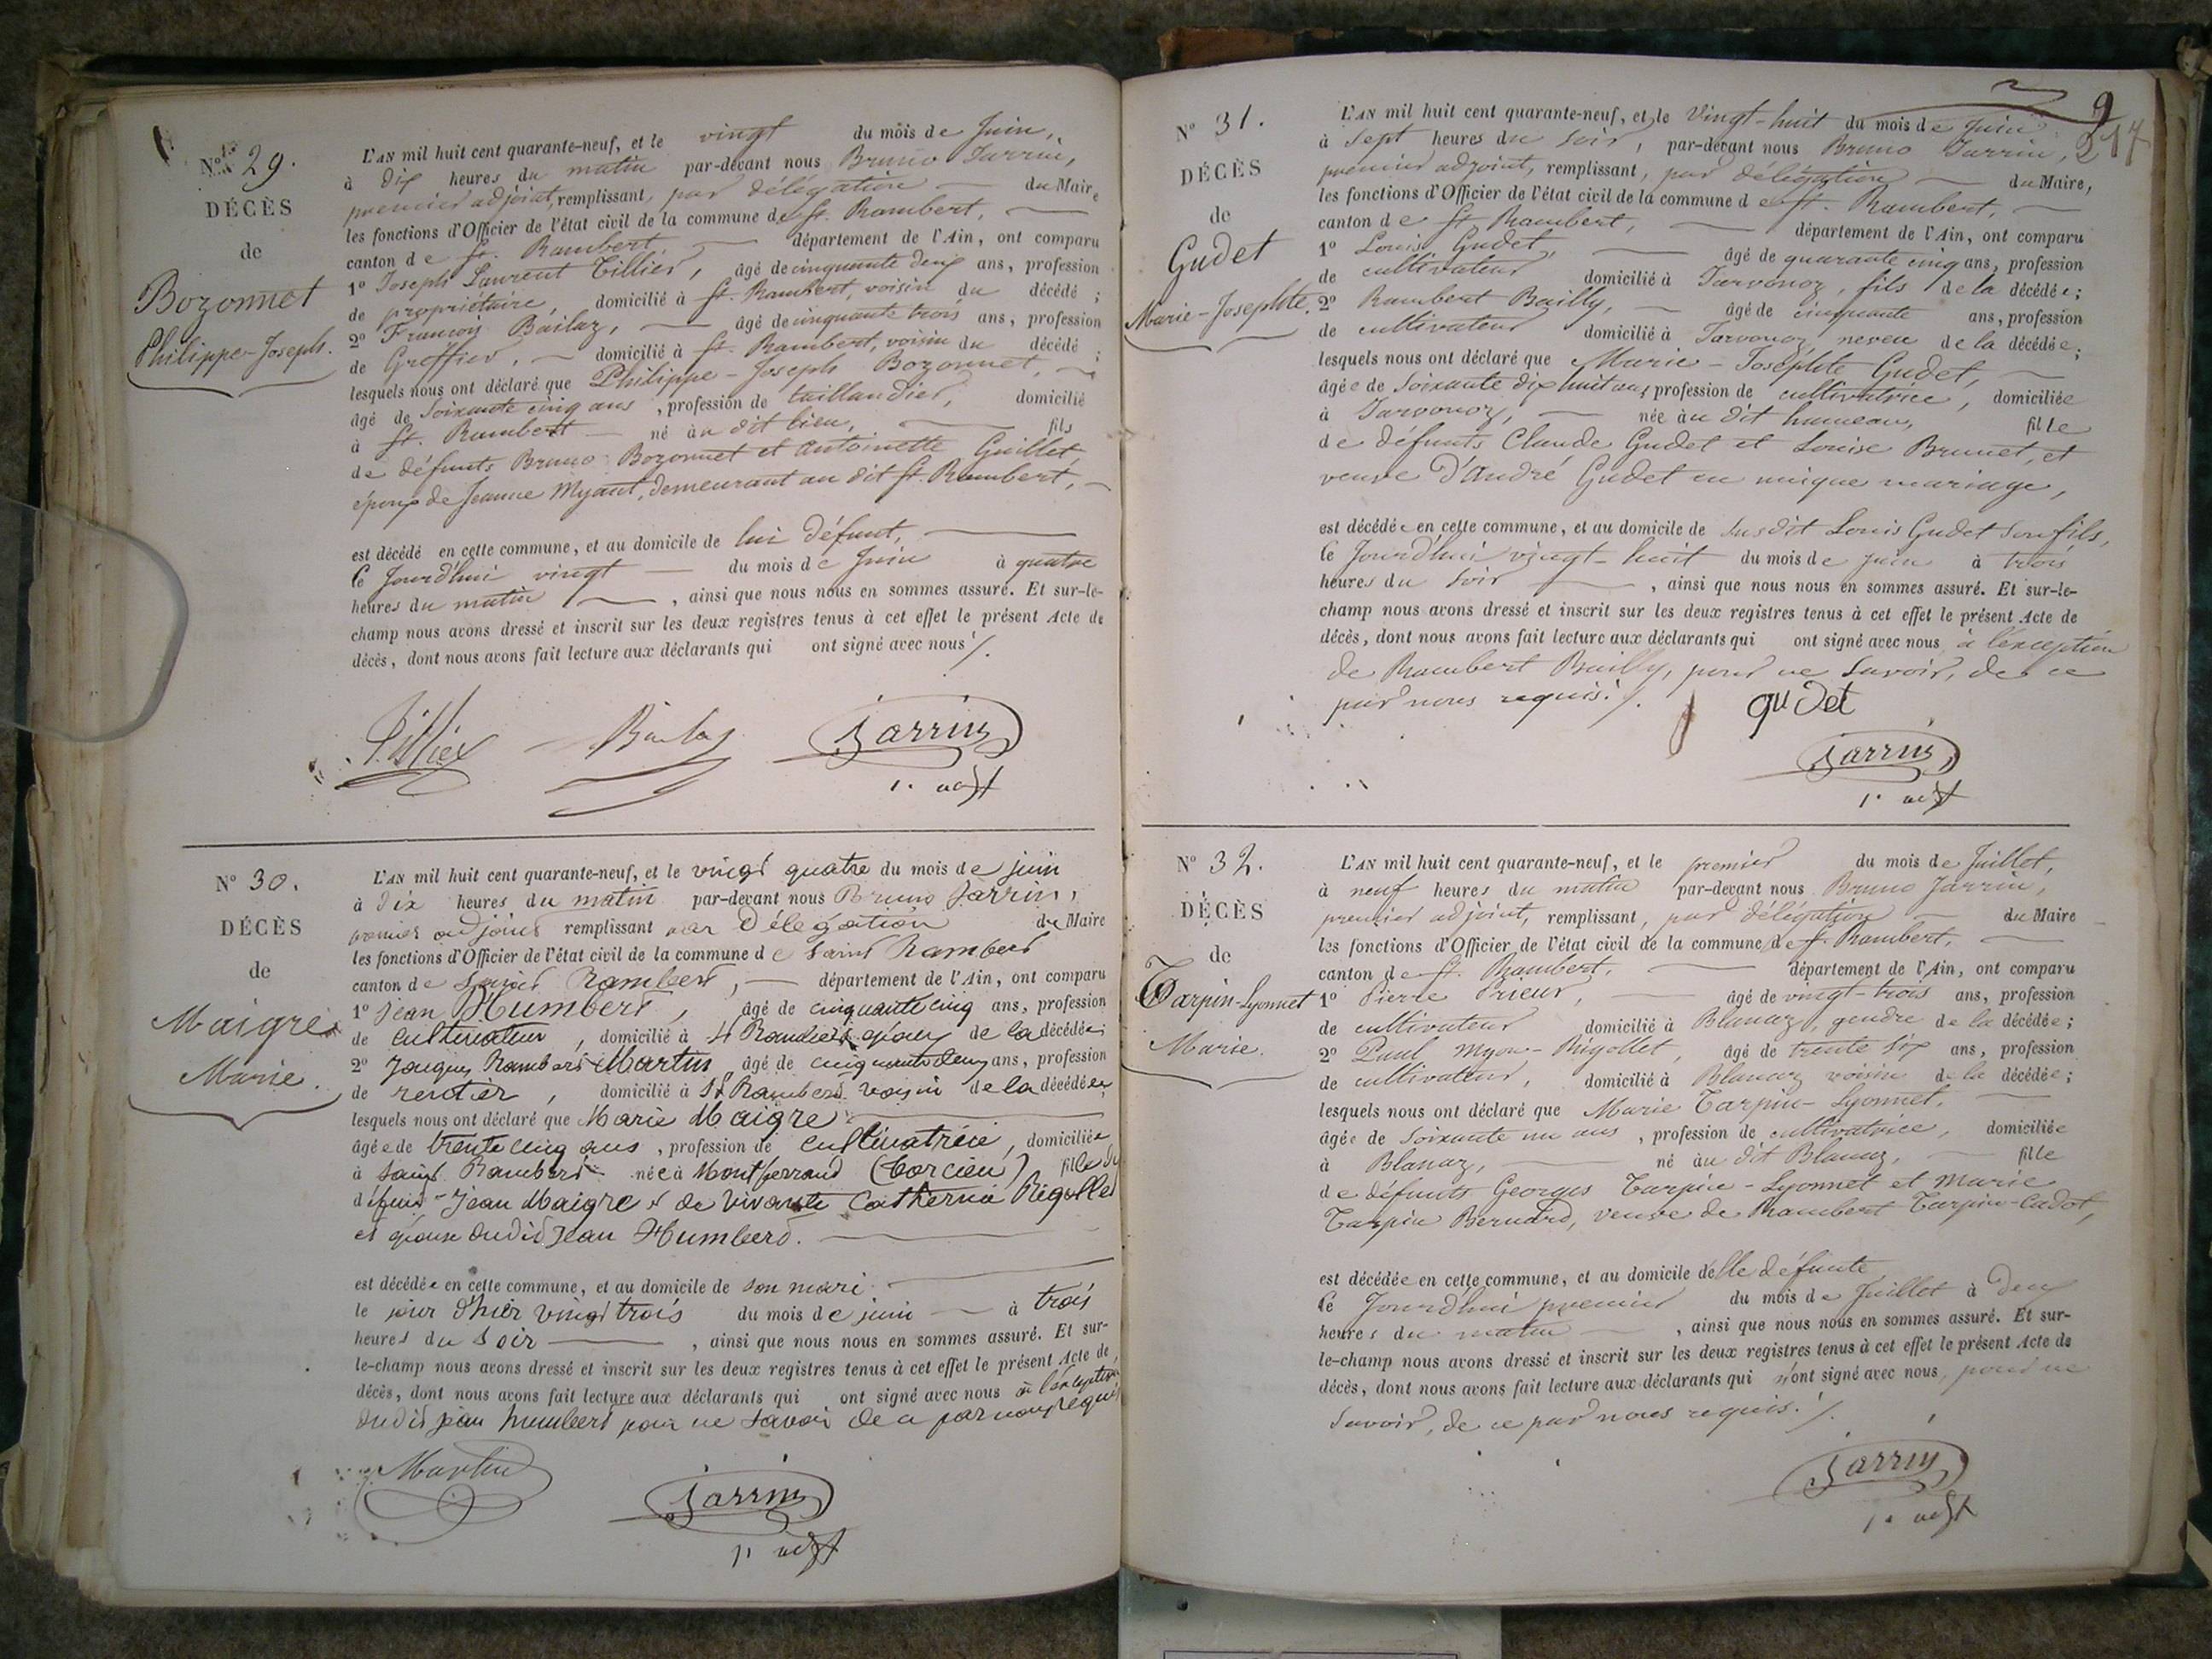 N° 29.
DÉCÈS
de
Bozonnet
Philippe-Joseph.
L'AN mil huit cent quarante-neuf, et le vingt du mois de Juin,
à dix heures du matin par-devant nous Bruno Jarrin,
premier adjoint, remplissant, par délégation du Maire
les fonctions d'Officier de l'état civil de la commune de St. Rambert,
canton de St. Rambert, département de l'Ain, ont comparu
1° Joseph Laurent Tillier, âgé de cinquante deux ans, profession
de propriétaire, domicilié à St. Rambert, voisin du décédé ;
2° François Bailaz, âgé de cinquante trois ans, profession
de Greffier, domicilié à St. Rambert, voisin du décédé ;
lesquels nous ont déclaré que Philippe-Joseph Bozonnet,
âgé de soixante cinq ans, profession de taillandier, domicilié
à St. Rambert né au dit lieu, fils
de défunts Bruno Bozonnet et antoinette Guillet,
époux de Jeanne Myant, demeurant au dit St. Rambert,
est décédé en cette commune, et au domicile de lui défunt,
le Jourd'hui vingt du mois de Juin à quatre
heures du matin, ainsi que nous nous en sommes assuré. Et sur-le-
champ nous avons dressé et inscrit sur les deux registres tenus à cet effet le présent Acte de
décès, dont nous avons fait lecture aux déclarants qui ont signé avec nous ./.
Tillier Bailaz Jarrin
1er adjt
N° 30.
DÉCÈS
de
Maigre
Marie.
L'AN mil huit cent quarante-neuf, et le vingt quatre du mois de juin
à dix heures du matin par-devant nous Bruno Jarrin,
premier adjoint remplissant par délégation du Maire
les fonctions d'Officier de l'état civil de la commune de saint Rambert
canton de Saint Rambert, département de l'Ain, ont comparu
1° Jean Humbert, âgé de cinquante cinq ans, profession
de cultivateur, domicilié à St Rambert époux de la décédée;
2° Jacques Rambert Martin âgé de cinquante deux ans, profession
de rentier, domicilié à St Rambert voisin de la décédée
lesquels nous ont déclaré que Marie Maigre
âgée de trente cinq ans, profession de cultivatrice, domiciliée
à saint Rambert née à Montferrand (Torcieu) fille de
défunt Jean Maigre et de vivante Catherine Rigollet
et épouse dudit Jean Humbert.
est décédée en cette commune, et au domicile de son mari
le jour d'hier vingt trois du mois de juin à trois
heures du soir, ainsi que nous nous en sommes assuré. Et sur-
le-champ nous avons dressé et inscrit sur les deux registres tenus à cet effet le présent Acte de
décès, dont nous avons fait lecture aux déclarants qui ont signé avec nous à l'exception
dudit jean humbert pour ne savoir de ce par nous requis
Martin Jarrin
1er adjt
9
217
N° 31.
DÉCÈS
de
Gudet
Marie-Josephte.
L'AN mil huit cent quarante-neuf, et le vingt-huit du mois de Juin
à sept heures du soir, par-devant nous Bruno Jarrin,
premier adjoint, remplissant, par délégation du Maire,
les fonctions d'Officier de l'état civil de la commune de St. Rambert,
canton de St. Rambert, département de l'Ain, ont comparu
1° Louis Gudet, âgé de quarante cinq ans, profession
de cultivateur domicilié à Jarvonoz, fils de la décédée;
2° Rambert Bailly, âgé de cinquante ans, profession
de cultivateur domicilié à Jarvonoz, neveu de la décédée;
lesquels nous ont déclaré que Marie-Josephte Gudet,
âgée de soixante dix huit ans, profession de cultivatrice, domiciliée
à Jarvonoz, née au dit hameau, fille
de défunts Claude Gudet et Louise Brunet, et
veuve d'andré Gudet en unique mariage,
est décédée en cette commune, et au domicile de susdit Louis Gudet son fils,
le Jourd'hui vingt-huit du mois de juin à trois
heures du soir, ainsi que nous nous en sommes assuré. Et sur-le-
champ nous avons dressé et inscrit sur les deux registres tenus à cet effet le présent Acte de
décès, dont nous avons fait lecture aux déclarants qui ont signé avec nous à l'exception
de Rambert Bailly, pour ne savoir, de ce
par nous requis ./. gudet
Jarrin
1er adjt
N° 32.
DÉCÈS
de
Tarpin-Lyonnet
Marie.
L'AN mil huit cent quarante-neuf, et le premier du mois de Juillet,
à neuf heures du matin par-devant nous Bruno Jarrin,
premier adjoint, remplissant, par délégation du Maire
les fonctions d'Officier de l'état civil de la commune de St. Rambert,
canton de St. Rambert, département de l'Ain, ont comparu
1° Pierre Prieur, âgé de vingt-trois ans, profession
de cultivateur domicilié à Blanaz, gendre de la décédée;
2° Paul Myon-Rigollet, âgé de trente six ans, profession
de cultivateur, domicilié à Blanaz voisin de la décédée;
lesquels nous ont déclaré que Marie Tarpin-Lyonnet,
âgée de soixante un ans, profession de cultivatrice, domiciliée
à Blanaz, né au dit Blanaz, fille
de défunts Georges Tarpin-Lyonnet et Marie
Tarpin Bernard, veuve de Rambert Tarpin-Cadot,
est décédée en cette commune, et au domicile d'elle défunte
le Jourd'hui premier du mois de Juillet à deux
heures du matin, ainsi que nous nous en sommes assuré. Et sur-
le-champ nous avons dressé et inscrit sur les deux registres tenus à cet effet le présent Acte de
décès, dont nous avons fait lecture aux déclarants qui n'ont signé avec nous, pour ne
savoir, de ce par nous requis ./.
Jarrin
1er adjt